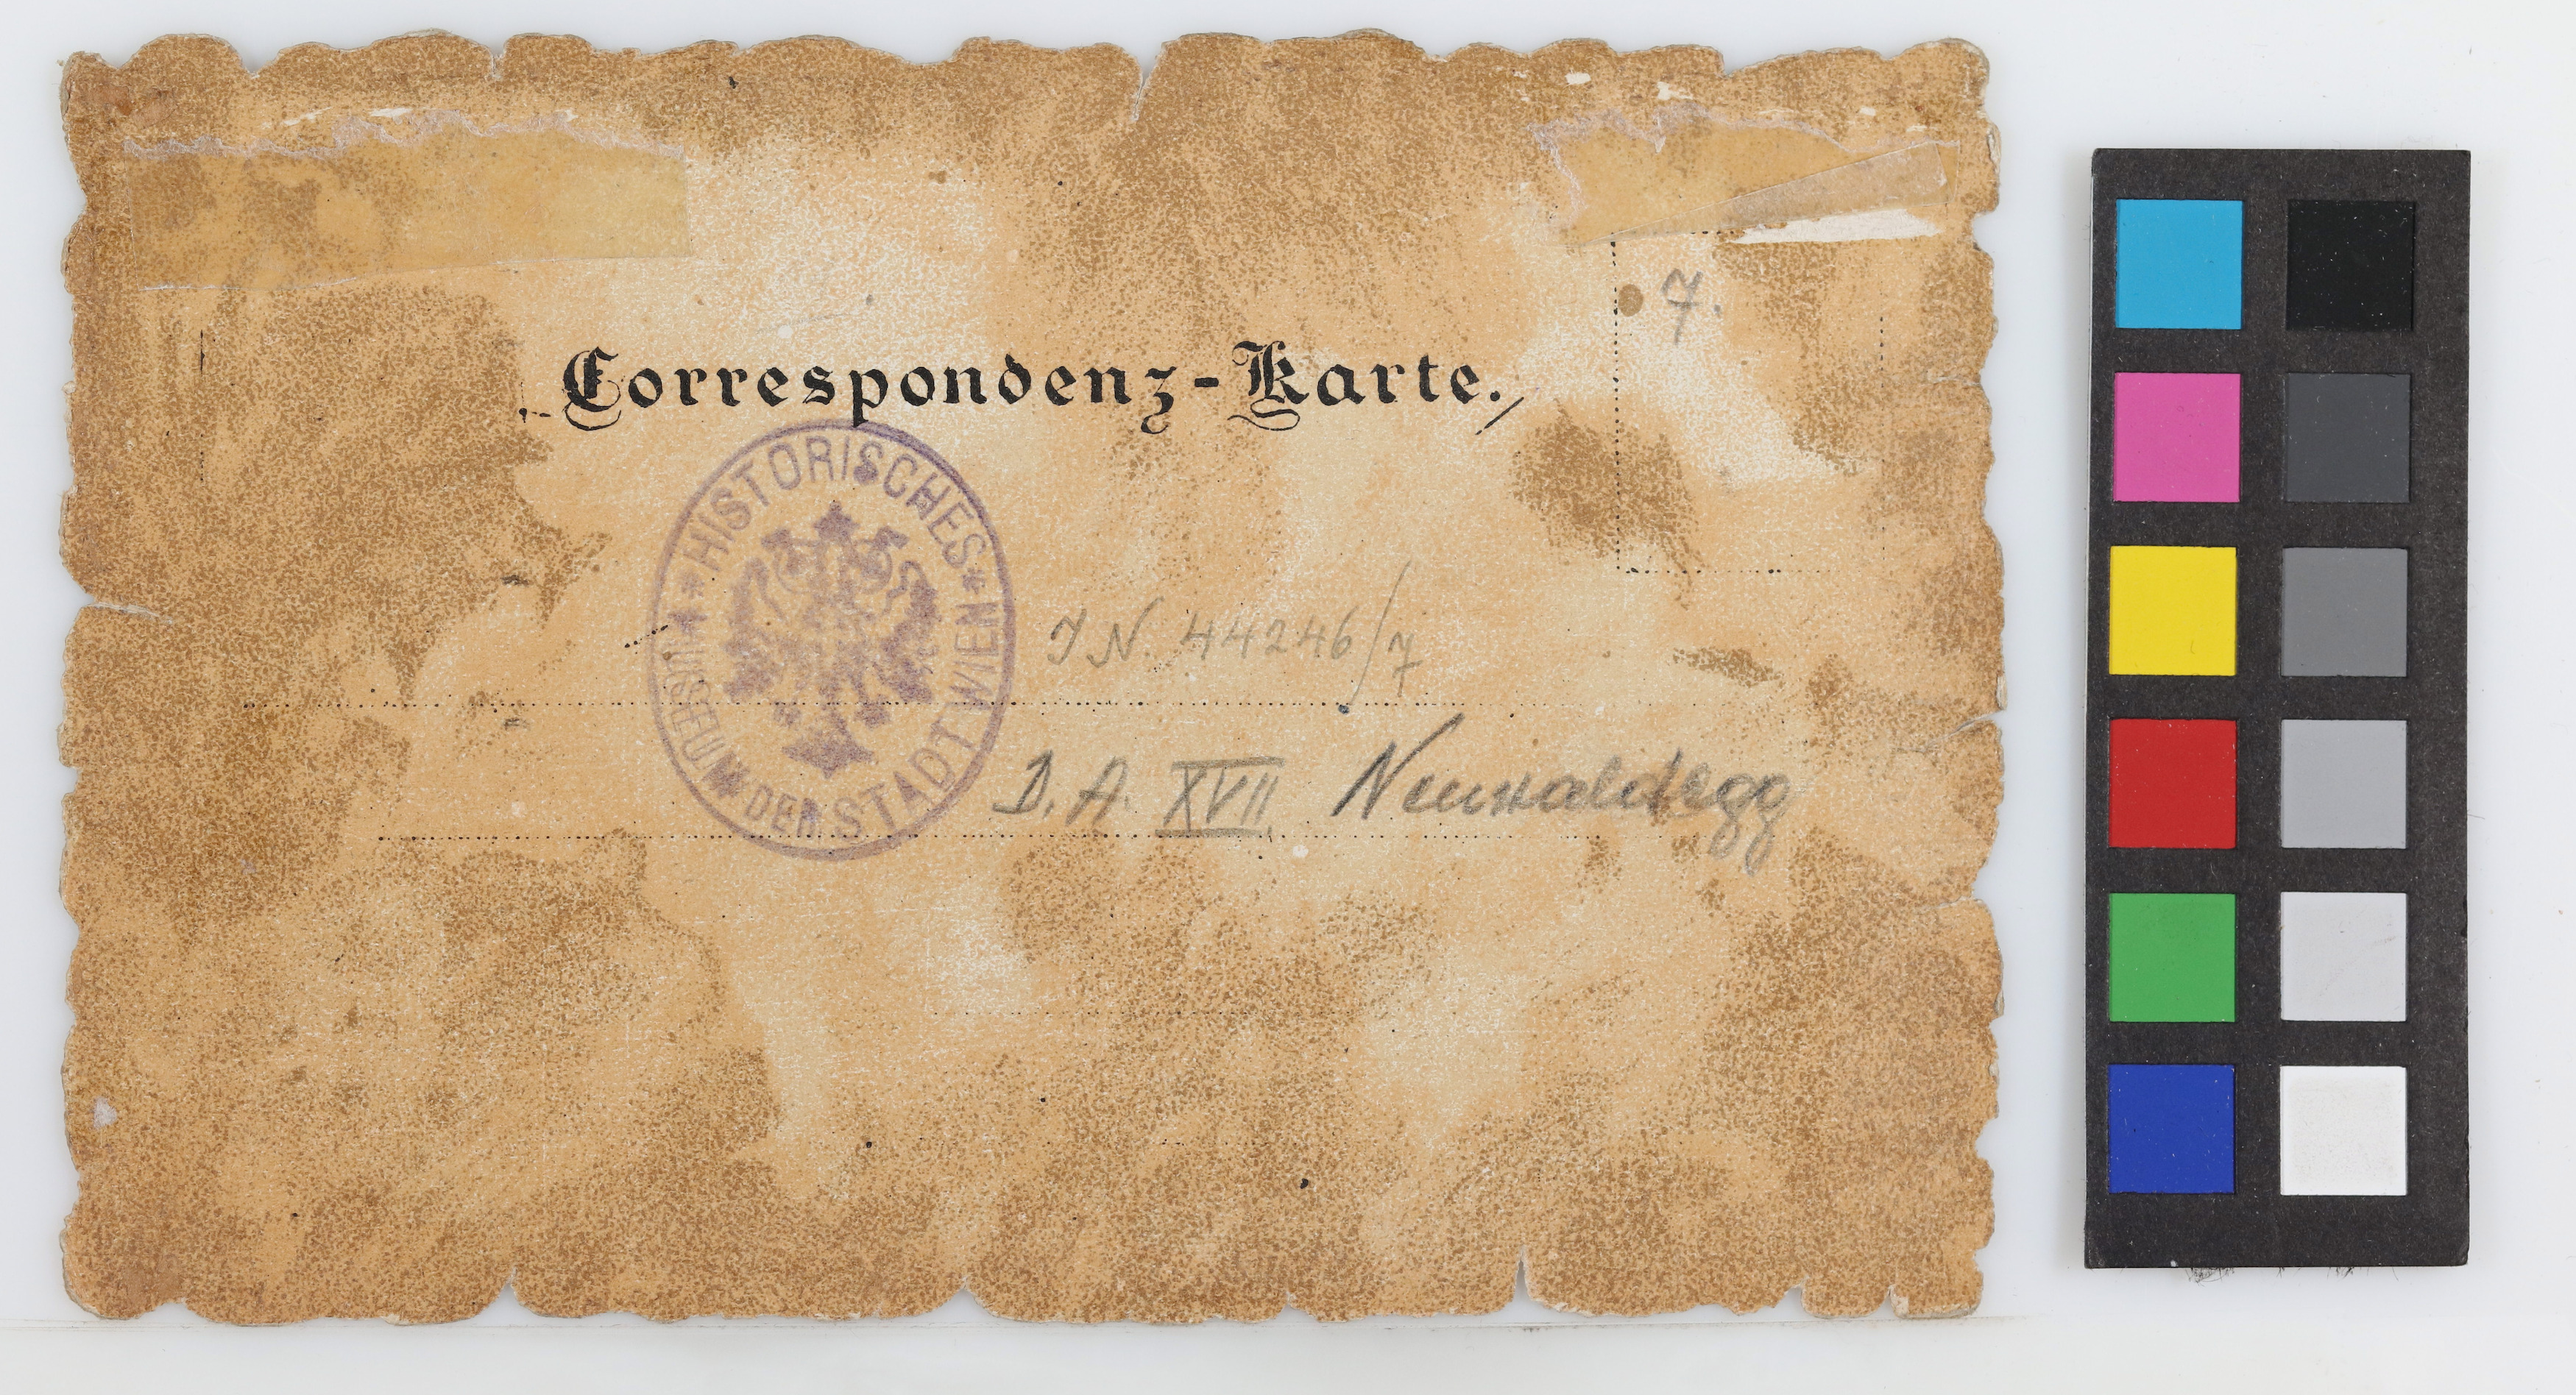 7.
Correspondenz-Karte.
* HISTORISCHES * MUSEUM DER STADT WIEN
I N. 44246/7
D. A. XVII Neuwaldegg